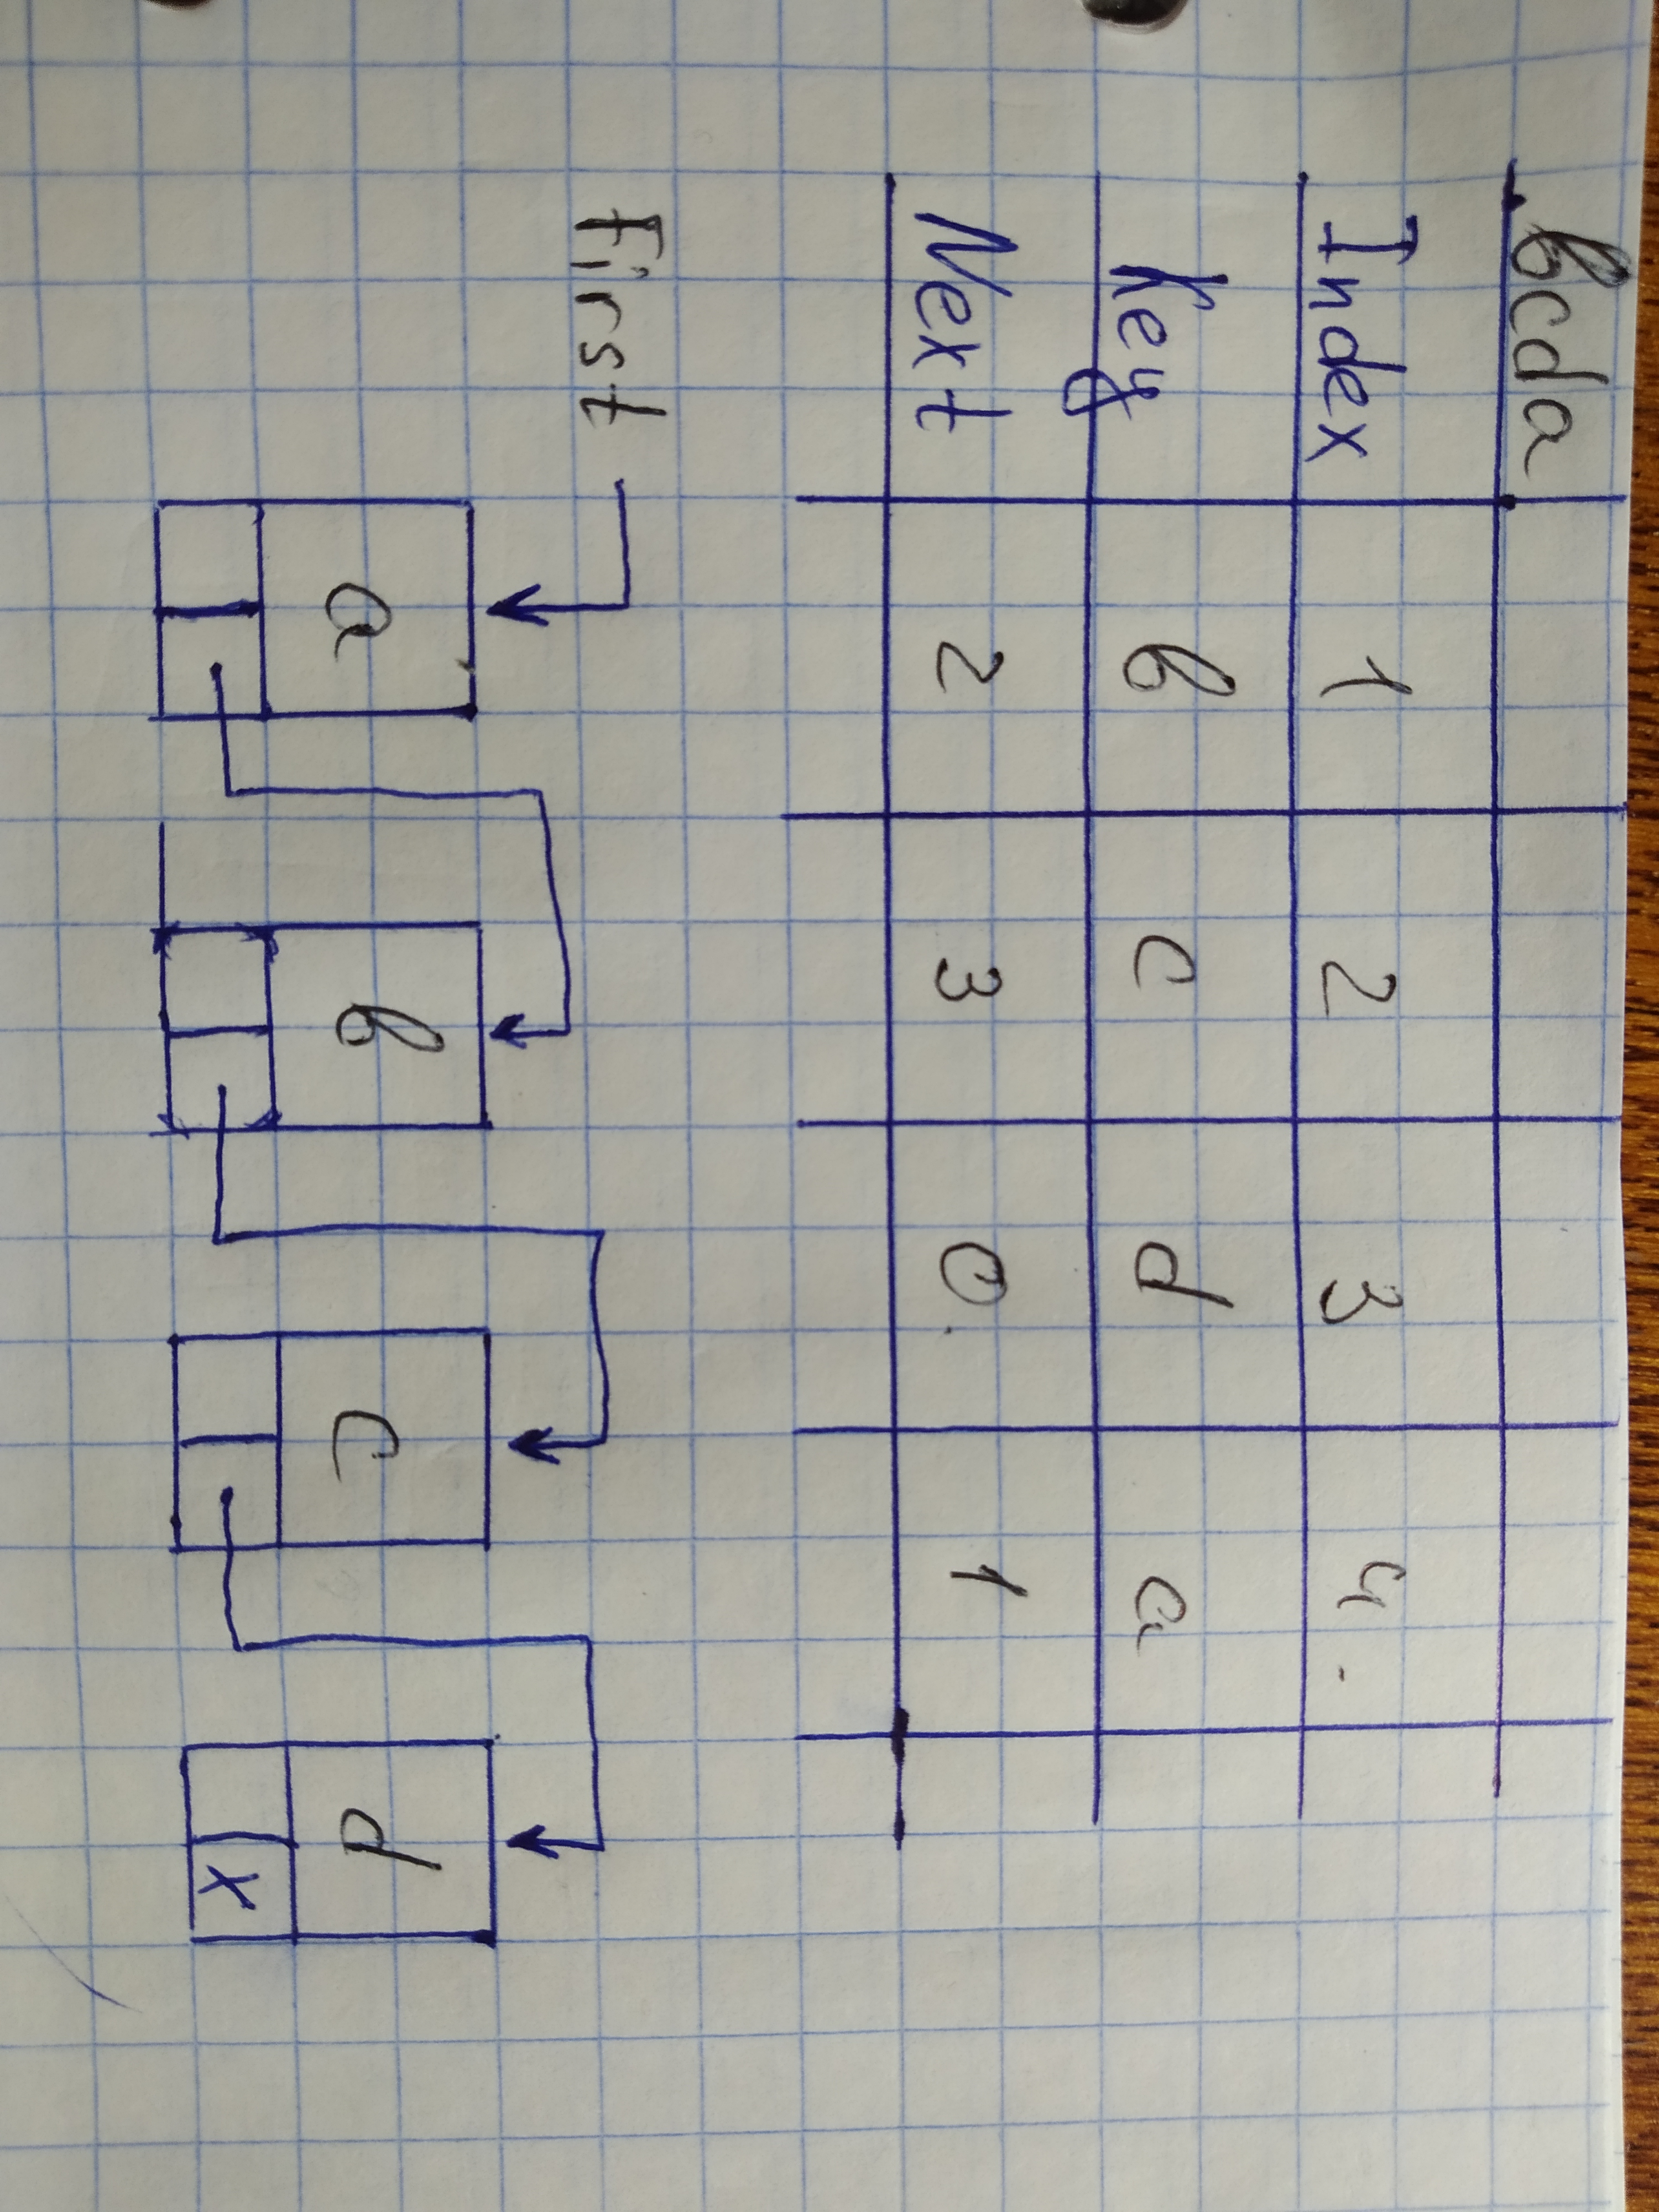 bcda
Index 1 2 3 4.
Key b c d a
Next 2 3 0. 1
first
a b c d
x